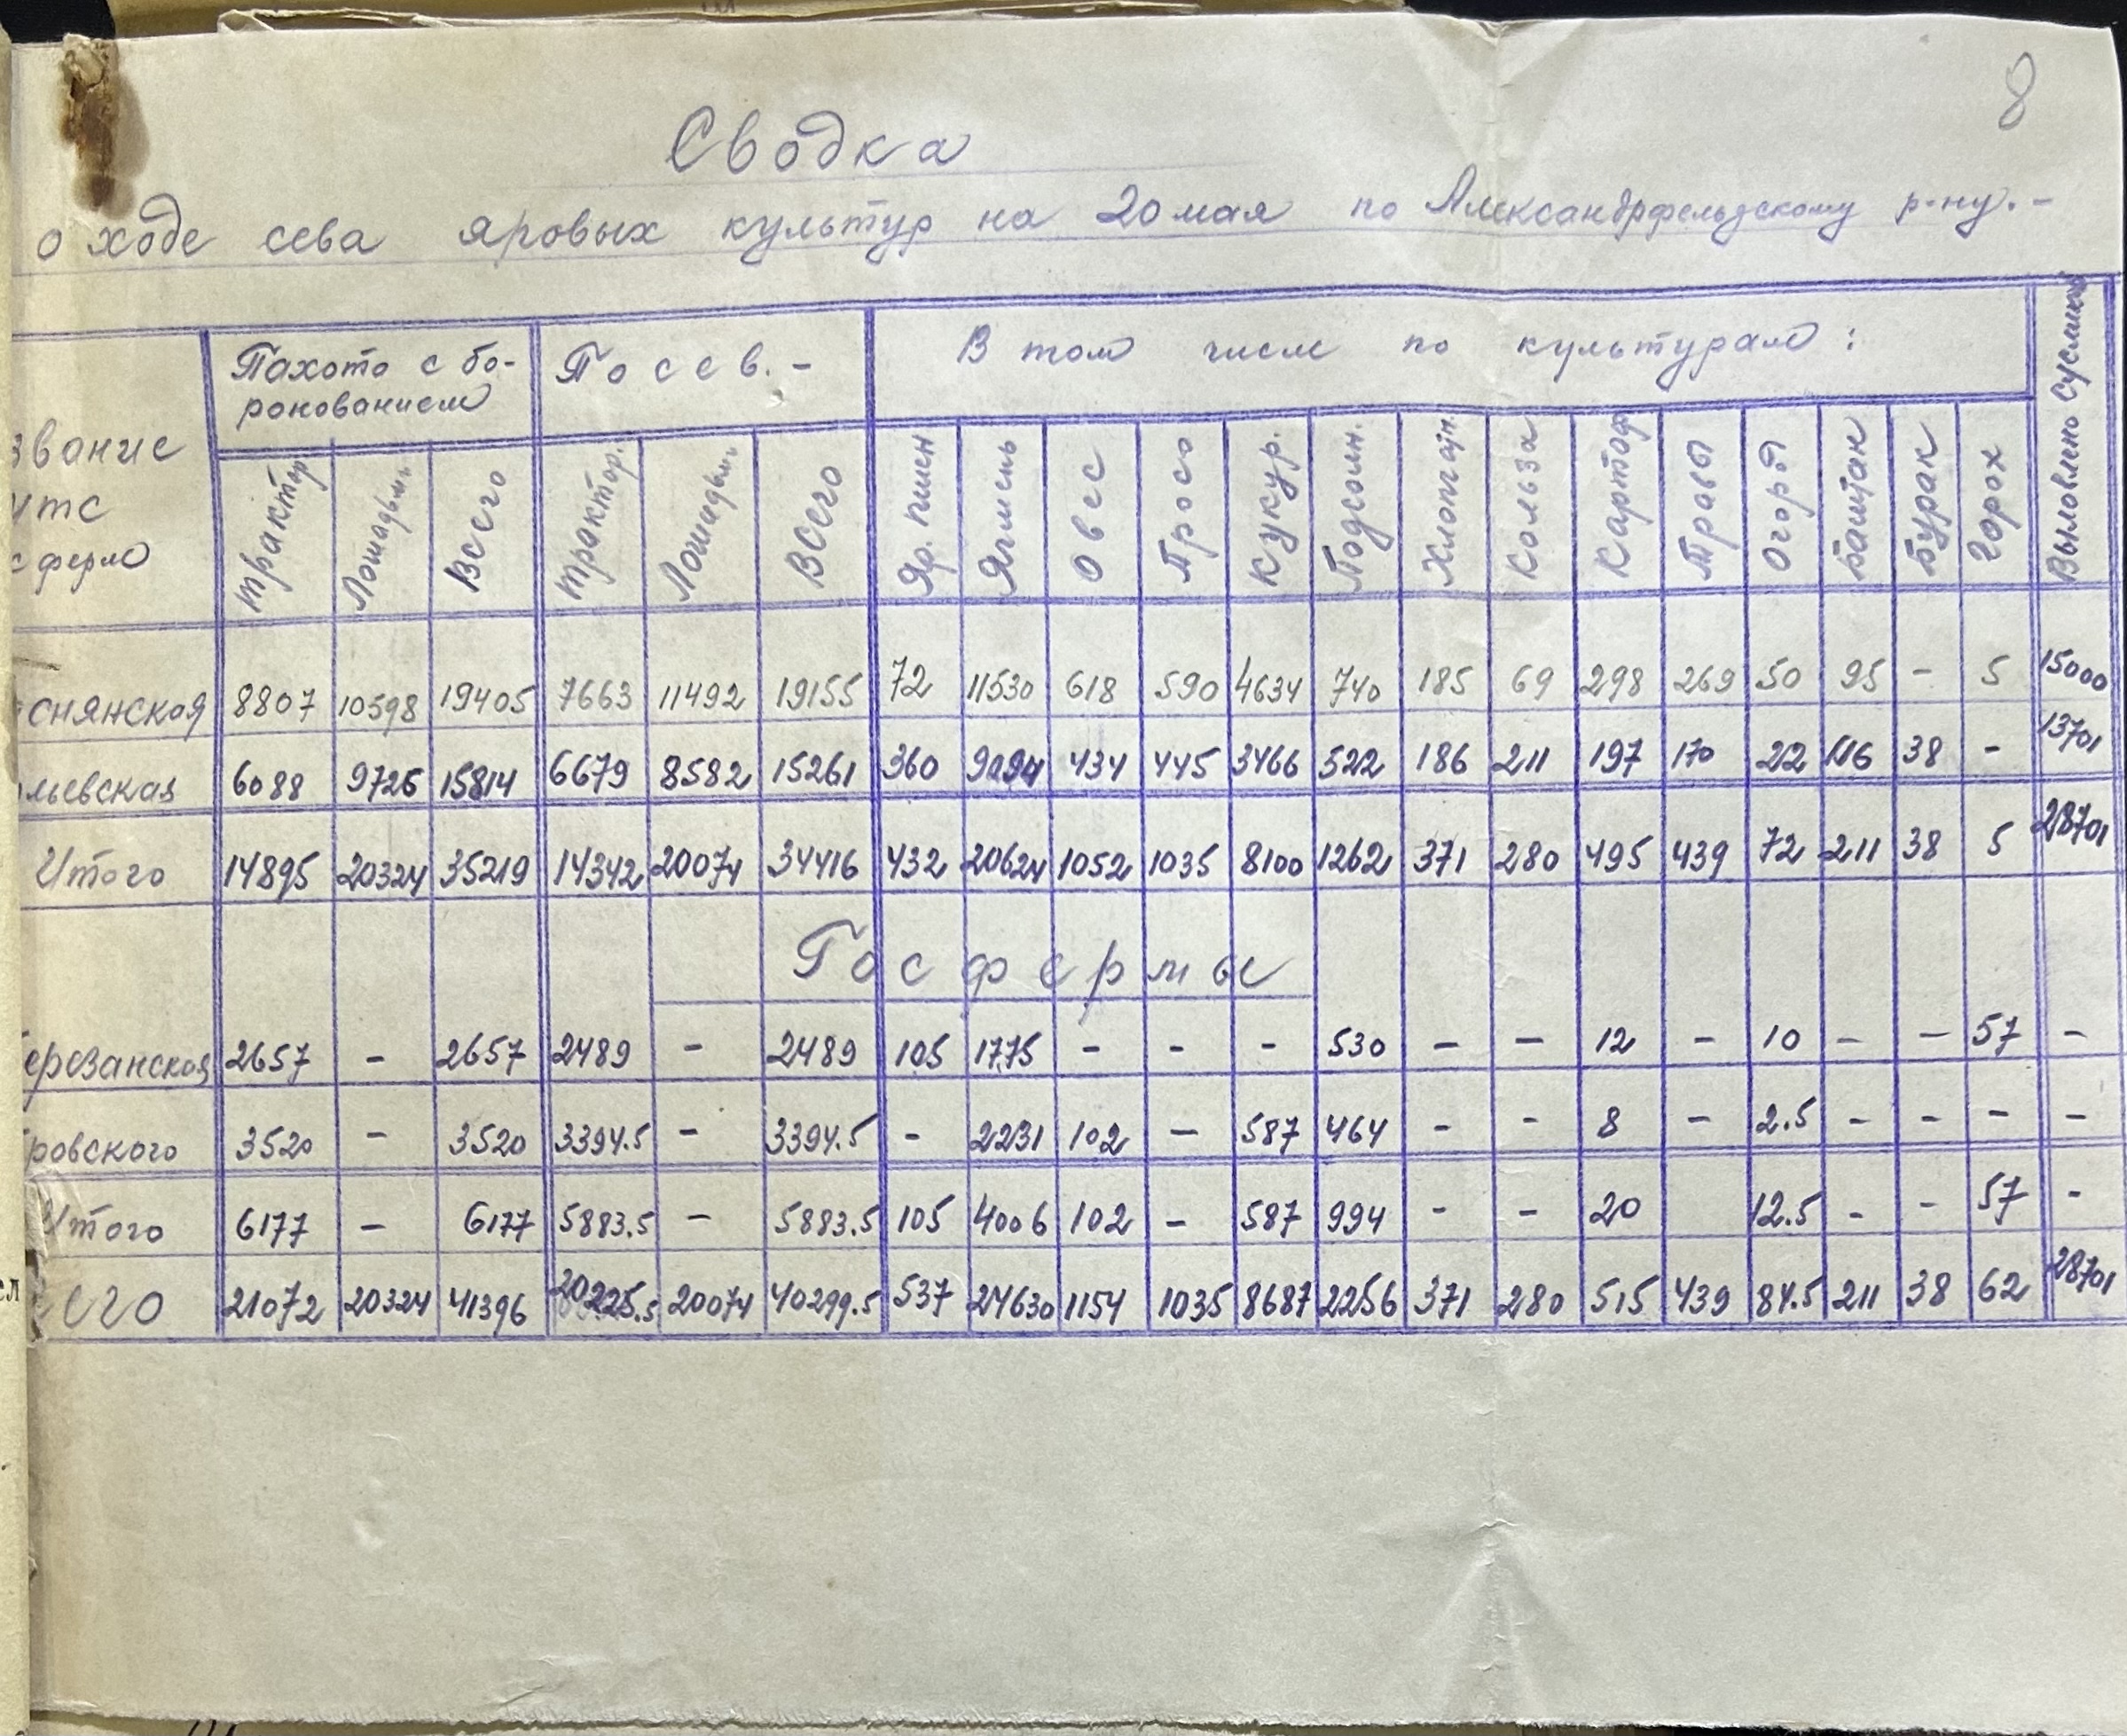 8
Сводка
о ходе сева яровых культур на 20 мая по Александрфельдскому р-ну.-
звание
мтс
с ферм
Пахота с бо-
ронованием
Посев.-
В том числе по культурам:
Трактор. Лошадьми Всего Трактор. Лошадьми Всего Яр. пшен Ячмень Овес Просо Кукур. Подсолн. Хлопчатн. Кольза Картоф Травы Огор. Баштак Бурак Горох Выловлено сусликов
снянская 8807 10598 19405 7663 11492 19155 72 11530 618 590 4634 740 185 69 298 269 50 95 - 5 15000
льевская 6088 9726 15814 6679 8582 15261 360 9094 434 445 3466 522 186 211 197 170 22 116 38 - 13701
Итого 14895 20324 35219 14342 20074 34416 432 20624 1052 1035 8100 1262 371 280 495 439 72 211 38 5 28701
Госфермы
ерезанская 2657 - 2657 2489 - 2489 105 1775 - - - 530 - - 12 - 10 - - 57 -
ровского 3520 - 3520 3394.5 - 3394.5 - 2231 102 - 587 464 - - 8 - 2.5 - - - -
Итого 6177 - 6177 5883.5 - 5883.5 105 4006 102 - 587 994 - - 20 12.5 - - 57 -
сего 21072 20324 41396 20225.5 20074 40299.5 537 24630 1154 1035 8687 2256 371 280 515 439 84.5 211 38 62 28701